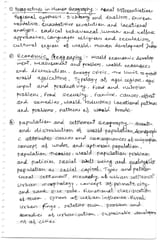 ① Perspectives in Human Geography: Areal differentiation
regional synthesis; Dichotomy and dualism, Environ-
mentalism; Quantitative revolution and locational
analysis; radical, behavioural, human and welfare
approaches; Languages, religions and secularisation;
Cultural regions of world; Human development Index
② Economic Geography: World economic develop-
ment, measurement and problems, World resources
and distribution; Energy crisis, the limits to growth
World agriculture, Typology of agri. region, agri
input and productivity; Food and nutrition
problems, Food security, Famine: causes, effect
and remedies, World Industries: locational patterns
and problems, patterns of world trade.
③ population and settlement Geography: Growth
and distribution of world population, demographic
attributes; causes and consequences of migration;
concept of under, and optimum population;
Population theories, World population problems
and policies, social well being and quality of life
population as social capital. Types and patterns of
rural settlement, Hierarchy of urban settlement;
Urban morphology; concept of primate city,
and rank size rule, Functional classification
of town, sphere of urban influence, Rural
Urban fringe, satellite town, problems and
remedies of urbanization, sustainable develop-
ment of cities.